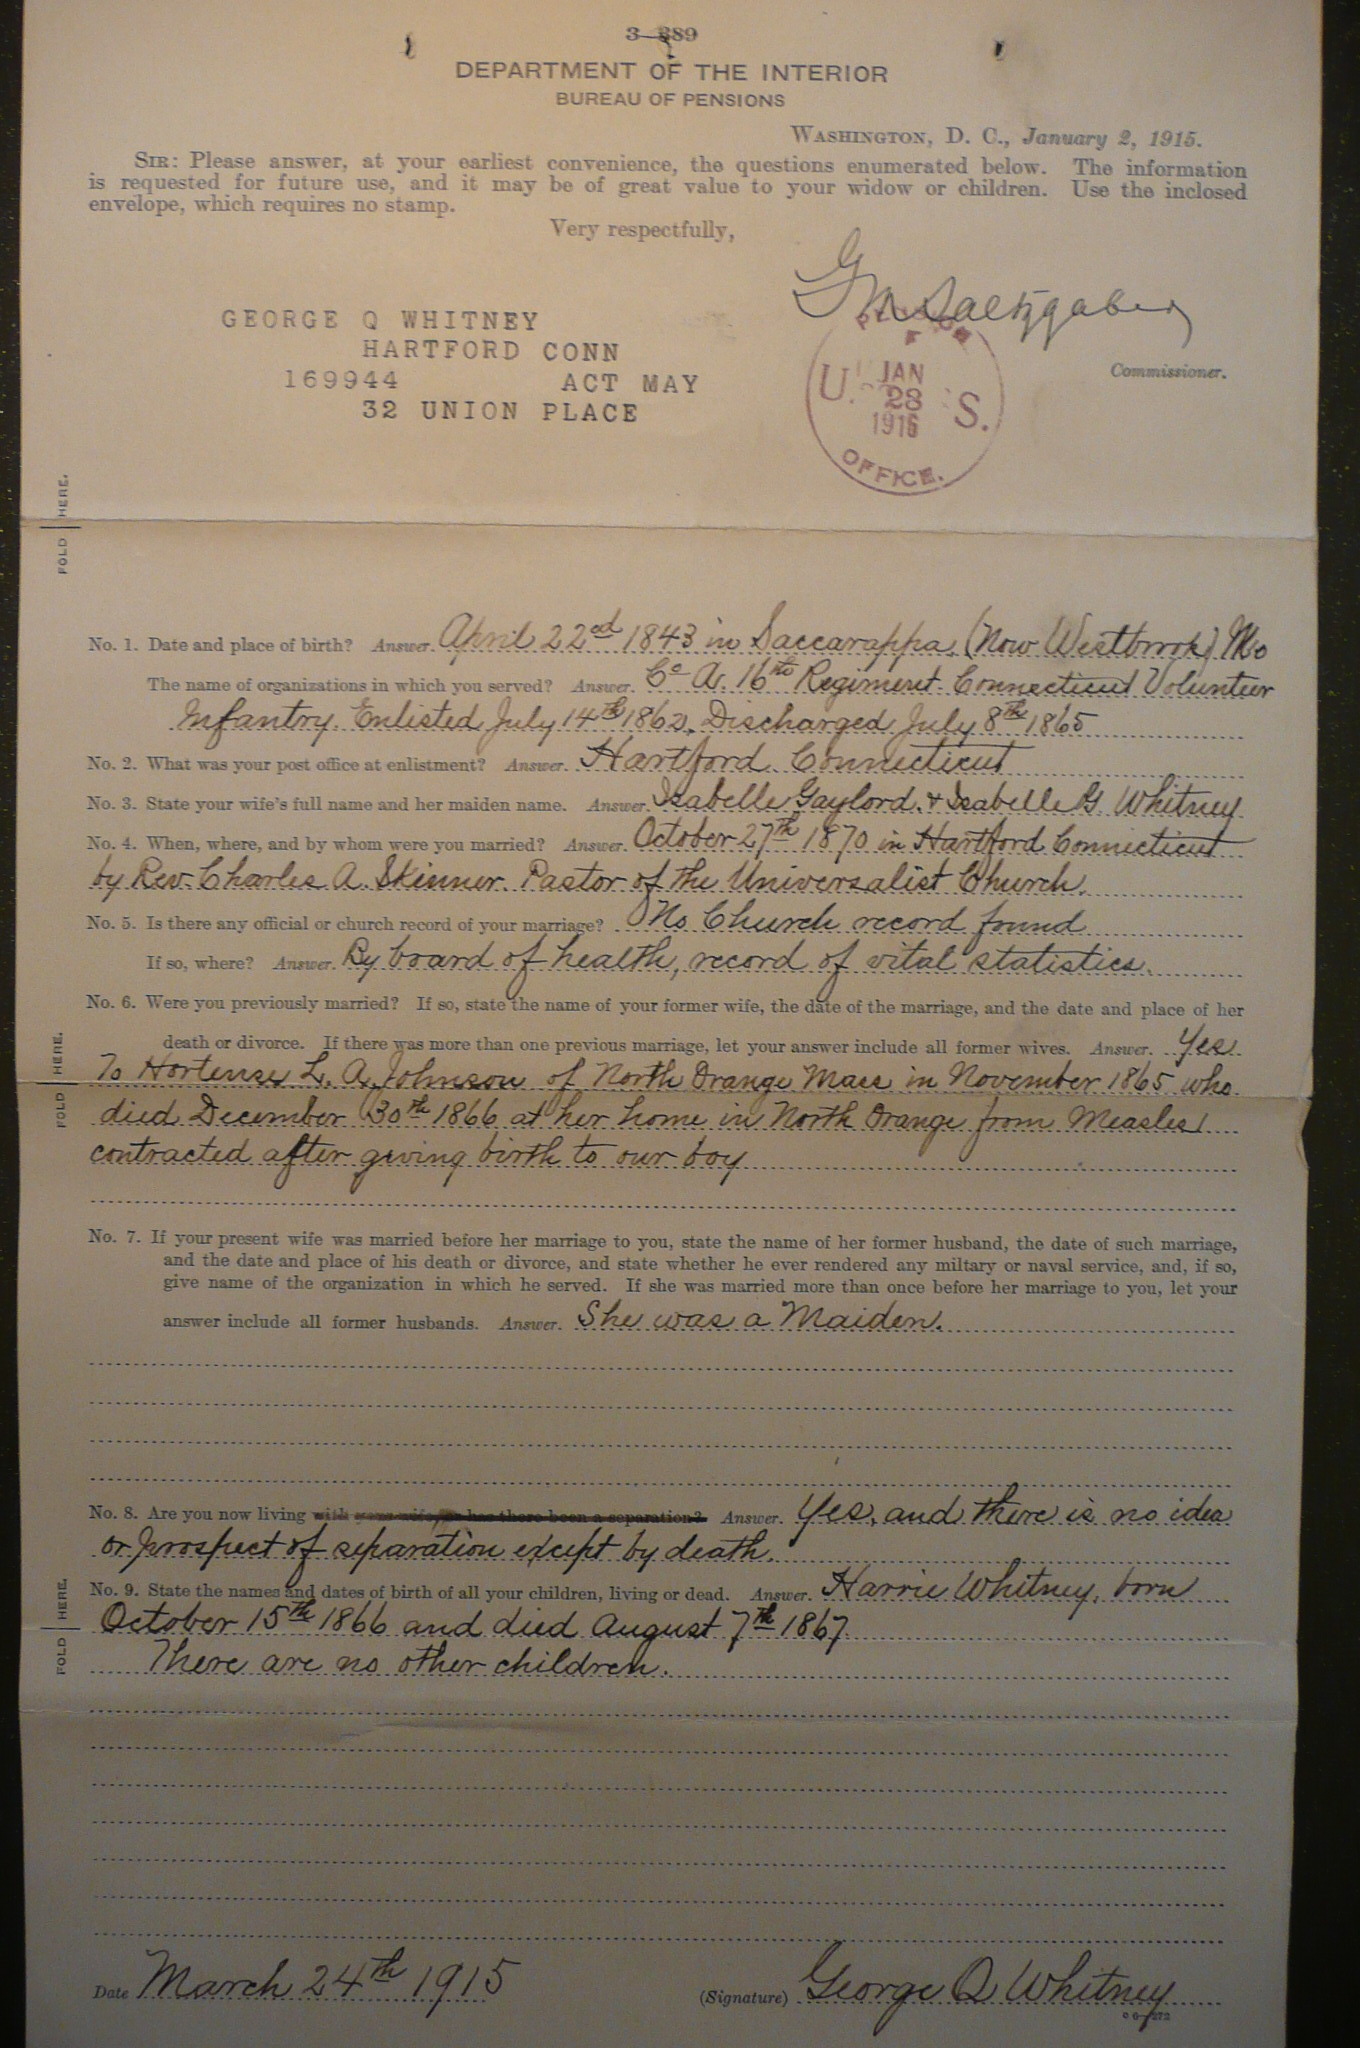 3—389
DEPARTMENT OF THE INTERIOR
BUREAU OF PENSIONS
WASHINGTON, D. C., January 2, 1915.
SIR: Please answer, at your earliest convenience, the questions enumerated below. The information
is requested for future use, and it may be of great value to your widow or children. Use the inclosed
envelope, which requires no stamp.
Very respectfully,
G M Saltzgaber
Commissioner.
GEORGE Q WHITNEY
HARTFORD CONN
169944 ACT MAY
32 UNION PLACE
U. S.
JAN
28
1916
OFFICE.
FOLD HERE.
No. 1. Date and place of birth? Answer. April 22nd 1843 in Saccarappa (Now Westbrook) Me
The name of organizations in which you served? Answer. Co A. 16th Regiment Connecticut Volunteer
Infantry. Enlisted July 14th 1862. Discharged July 8th 1865
No. 2. What was your post office at enlistment? Answer. Hartford. Connecticut
No. 3. State your wife's full name and her maiden name. Answer. Isabelle Gaylord. + Isabelle G Whitney
No. 4. When, where, and by whom were you married? Answer. October 27th 1870 in Hartford Connecticut
by Rev. Charles A. Skinner. Pastor of the Universalist Church.
No. 5. Is there any official or church record of your marriage? No Church record found
If so, where? Answer. By board of health, record of vital statistics.
No. 6. Were you previously married? If so, state the name of your former wife, the date of the marriage, and the date and place of her
death or divorce. If there was more than one previous marriage, let your answer include all former wives. Answer. Yes.
To Hortense L. A. Johnson of North Orange Mass in November 1865 who
died December 30th 1866 at her home in North Orange from Measles
contracted after giving birth to our boy
FOLD HERE.
No. 7. If your present wife was married before her marriage to you, state the name of her former husband, the date of such marriage,
and the date and place of his death or divorce, and state whether he ever rendered any miltary or naval service, and, if so,
give name of the organization in which he served. If she was married more than once before her marriage to you, let your
answer include all former husbands. Answer. She was a Maiden.
No. 8. Are you now living with your wife, or has there been a separation? Answer. Yes, and there is no idea
or prospect of separation except by death.
No. 9. State the names and dates of birth of all your children, living or dead. Answer. Harrie Whitney, born
October 15th 1866 and died August 7th 1867
There are no other children.
FOLD HERE.
Date March 24th 1915 (Signature) George Q Whitney